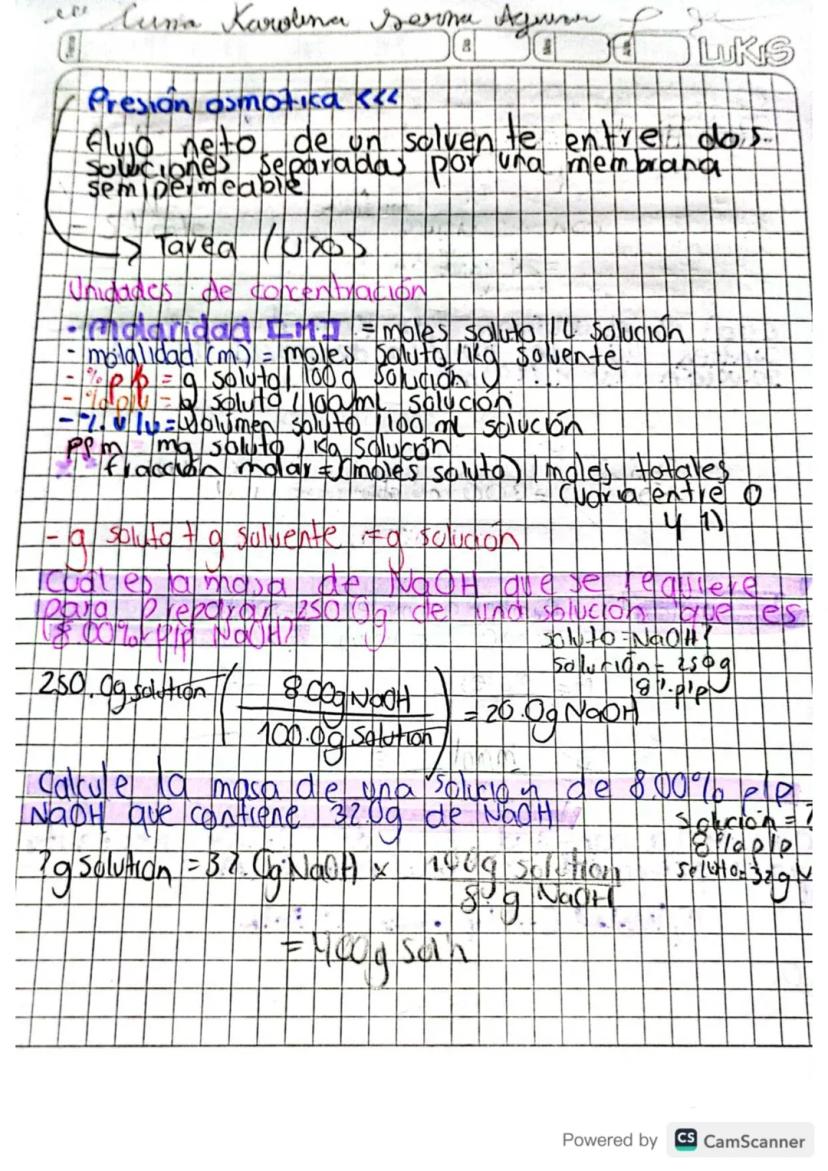 Karolina
LUKIS
Presión osmotica <<<
flujo neto de un solvente entre dos
soluciones separadas por una membrana
semipermeable
→ Tarea / usos
Unidades de concentración
- Molaridad [M] = moles soluto / L solución
- molalidad (m) = moles soluto / 1kg solvente
- % p/p = g soluto / 100g solución y ...
- % p/v = g soluto / 100 ml solución
- % v/v = Volúmen soluto / 100 ml solución
PPm mg soluto / Kg solucón
fracción molar = (moles soluto) / moles totales
(varia entre 0
y 1)
- g soluto + g solvente = g solución
Cuál es la masa de NaOH que se requiere
para preparar 250.0g de una solución que es
8.00% p/p NaOH?
soluto = NaOH?
solución = 250g
8% p/p
250.0g solution ( 8.00g NaOH / 100.0g Solution ) = 20.0g NaOH
Calcule la masa de una solución de 8.00% p/p
NaOH que contiene 32.0g de NaOH
Solución = ?
8% p/p
soluto = 32g N
? g Solution = 32.0g NaOH x 100g solution / 8.0 g NaOH
= 400g soln
Powered by CS CamScanner